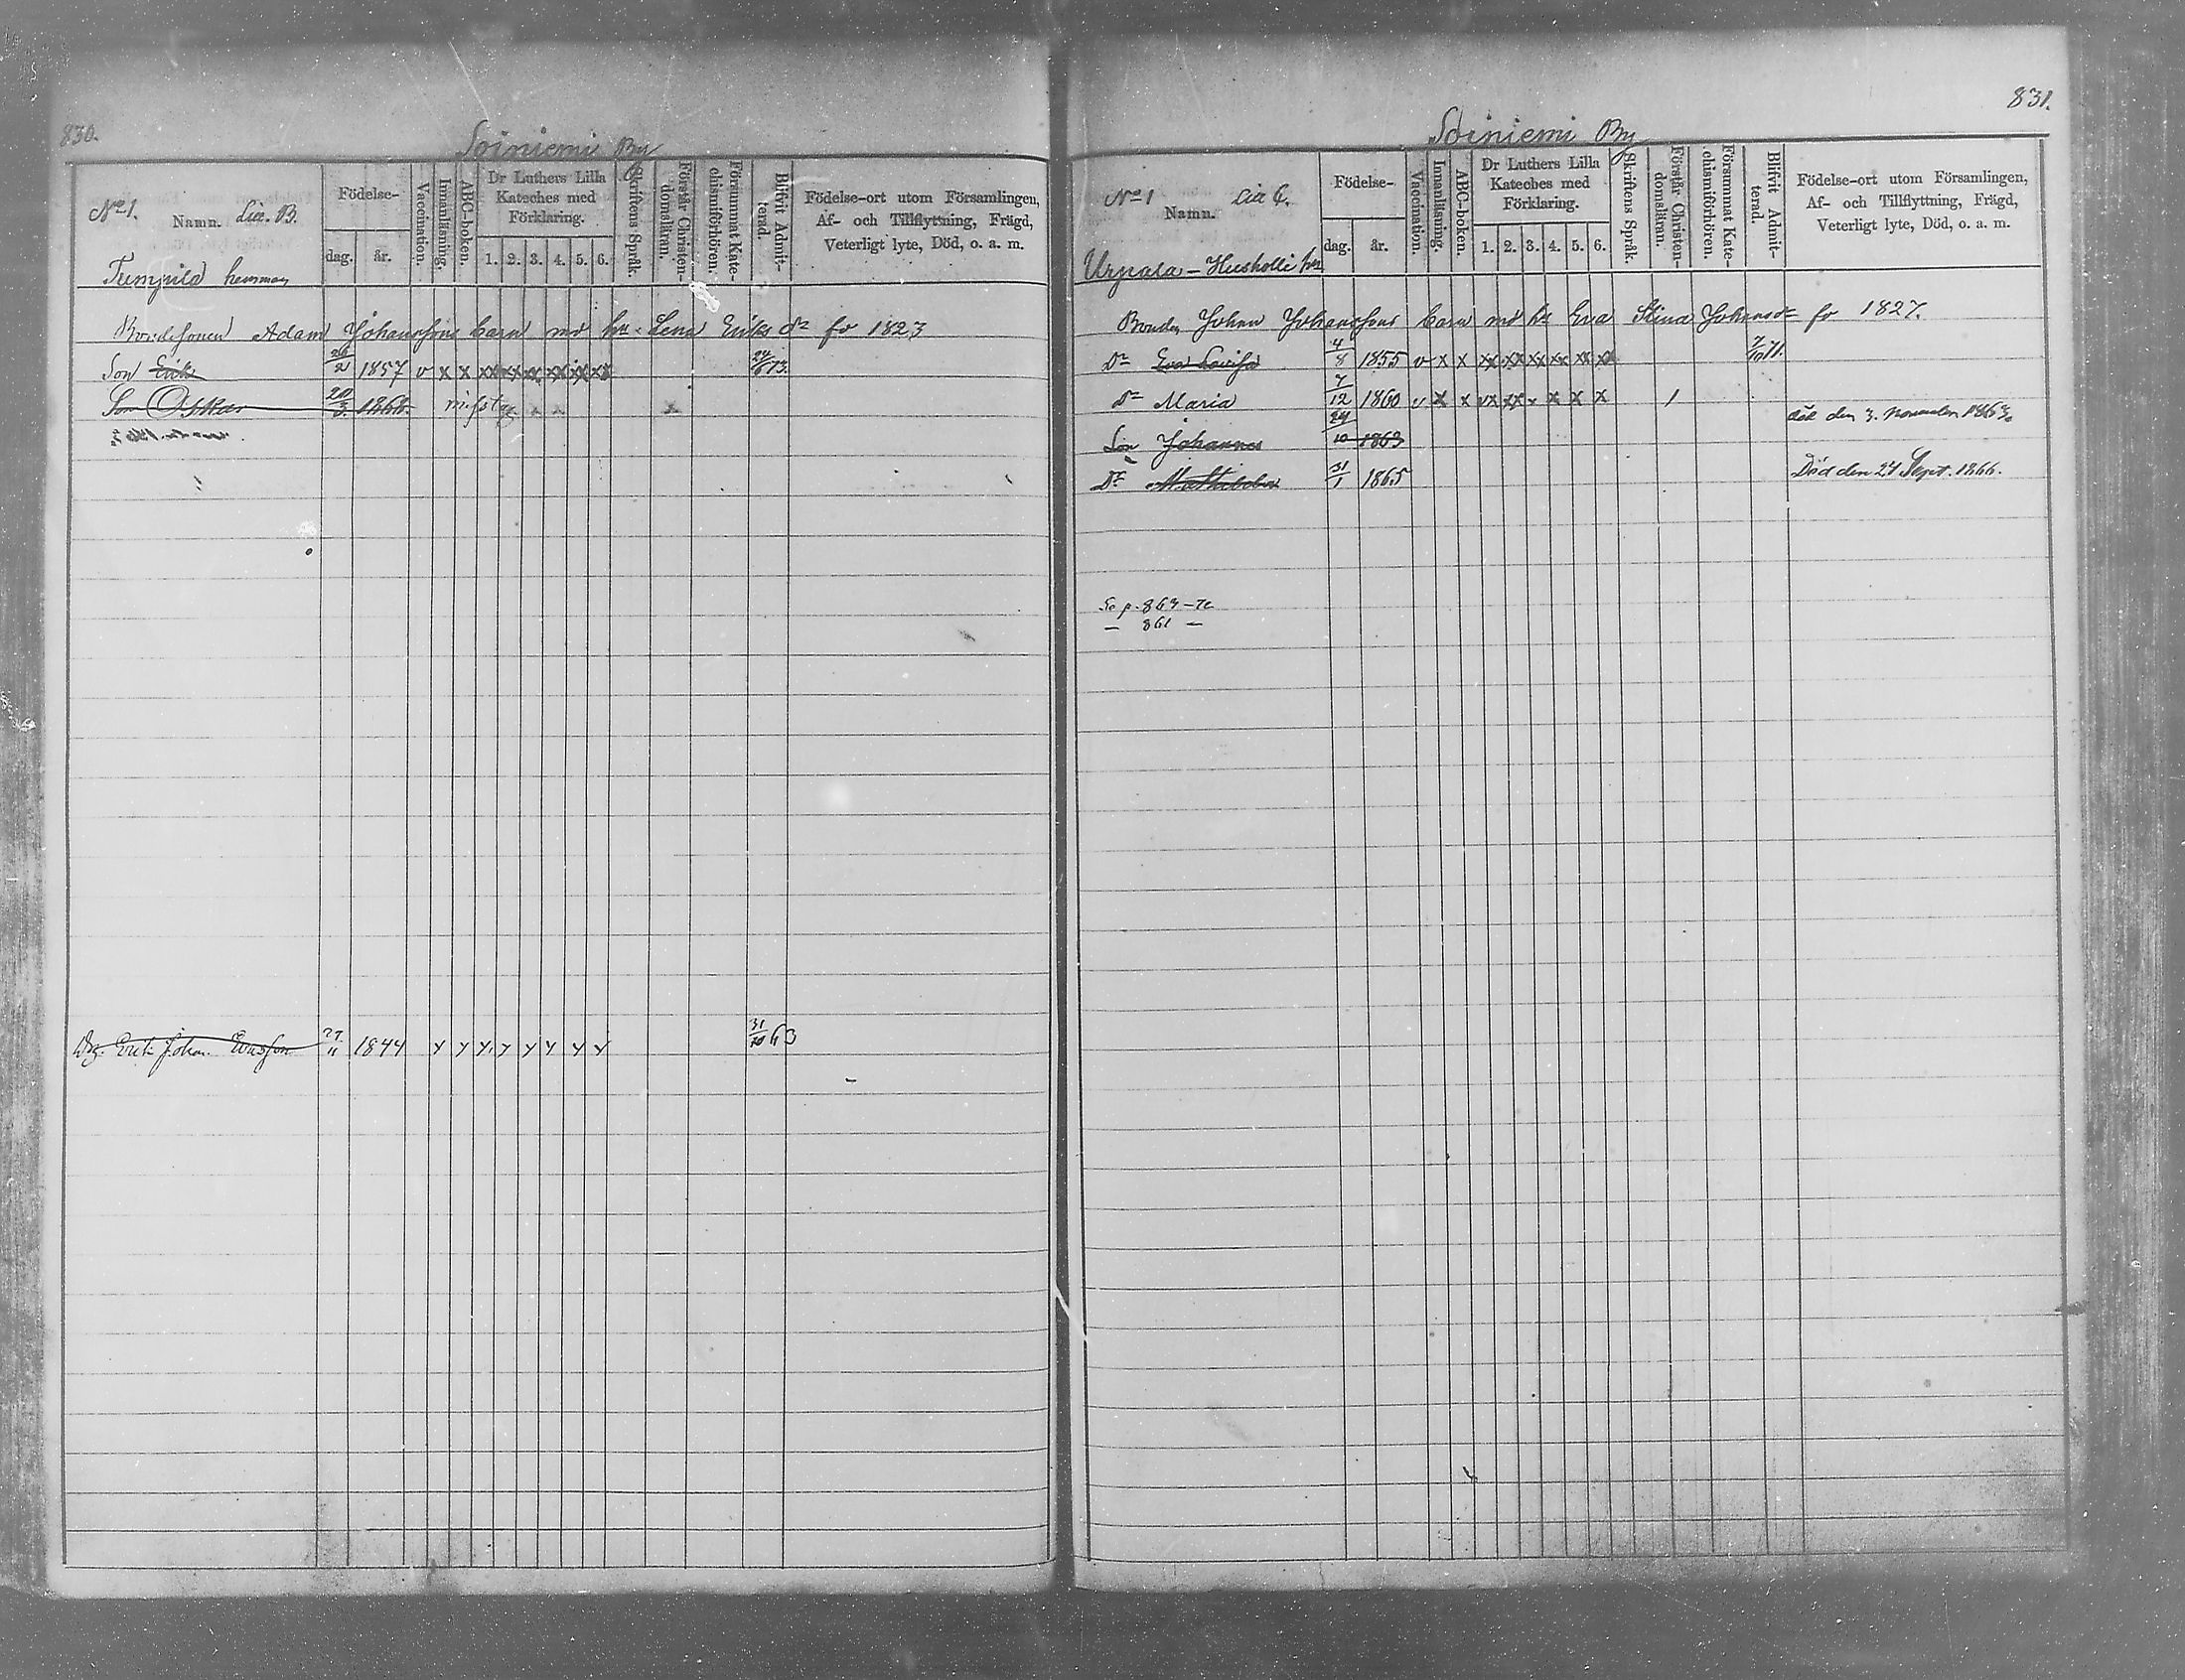 830.
Soiniemi By
No 1. Namn. Lia. B.
Födelse-
dag. år.
Vaccination.
Innanläsning.
ABC-boken.
Dr Luthers Lilla
Kateches med
Förklaring.
1. 2. 3. 4. 5. 6.
Skriftens Språk.
Förstår Christen-
domsläran.
Försummat Kate-
chismiförhören.
Blifvit Admit-
terad.
Födelse-ort utom Församlingen,
Af- och Tillflyttning, Frägd,
Veterligt lyte, Död, o. a. m.
hemman
Bondesonen Adam Johanssons barn md hu. Lena Eriks dr fö 1823
Son Erik 26/2 1857 v x x xx xx xx xx xx xx 24/6 73.
Son Oskar 20/3
Erik Johan 27/11 1844 y y y y y y y y 31/10 63
831.
Soiniemi By
No 1 Namn. Lia C.
Födelse-
dag. år.
Vaccination.
Innanläsning.
ABC-boken.
Dr Luthers Lilla
Kateches med
Förklaring.
1. 2. 3. 4. 5. 6.
Skriftens Språk.
Förstår Christen-
domsläran.
Försummat Kate-
chismiförhören.
Blifvit Admit-
terad.
Födelse-ort utom Församlingen,
Af- och Tillflyttning, Frägd,
Veterligt lyte, Död, o. a. m.
Bonden Johan Johanssons barn md hu Eva Stina Johansdr fö 1827.
Dr Eva Lovisa 4/8 1855 v x x xx xx xx xx xx xx 7/10 71.
dr Maria 7/12 1860 v x x vx xx x x x x 1
Son Johannes 24/10 1863 död den 3. November 1863.
Dr Mathilda 31/1 1865 Död den 24 Sept. 1866.
Se p. 869
— 861 —